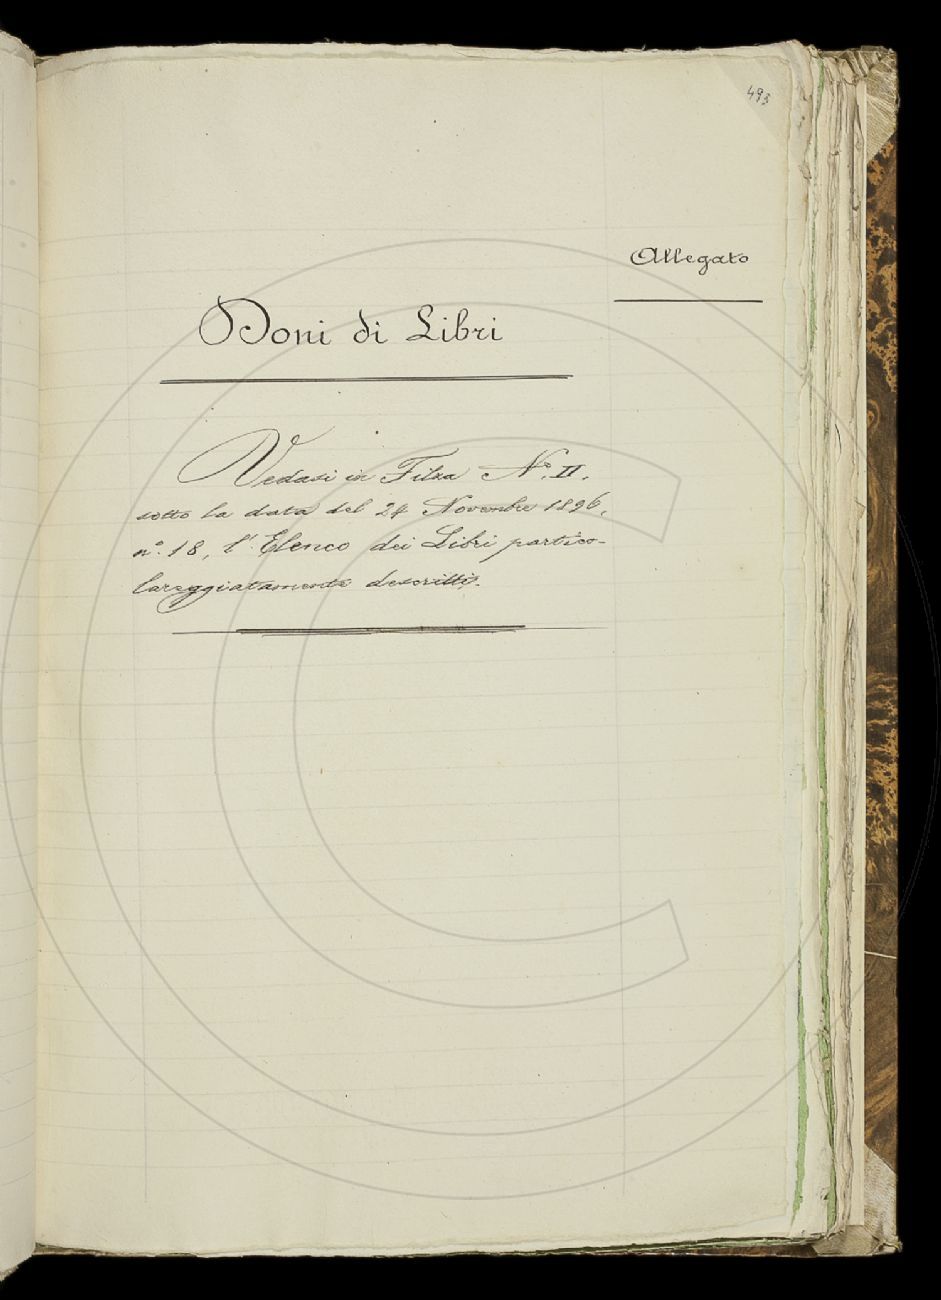 493
Allegato
Doni di Libri
Vedasi in Filza N.º II,
sotto la data del 24 Novembre 1896,
n.º 18, l'Elenco dei Libri partico-
lareggiatamente descritti.